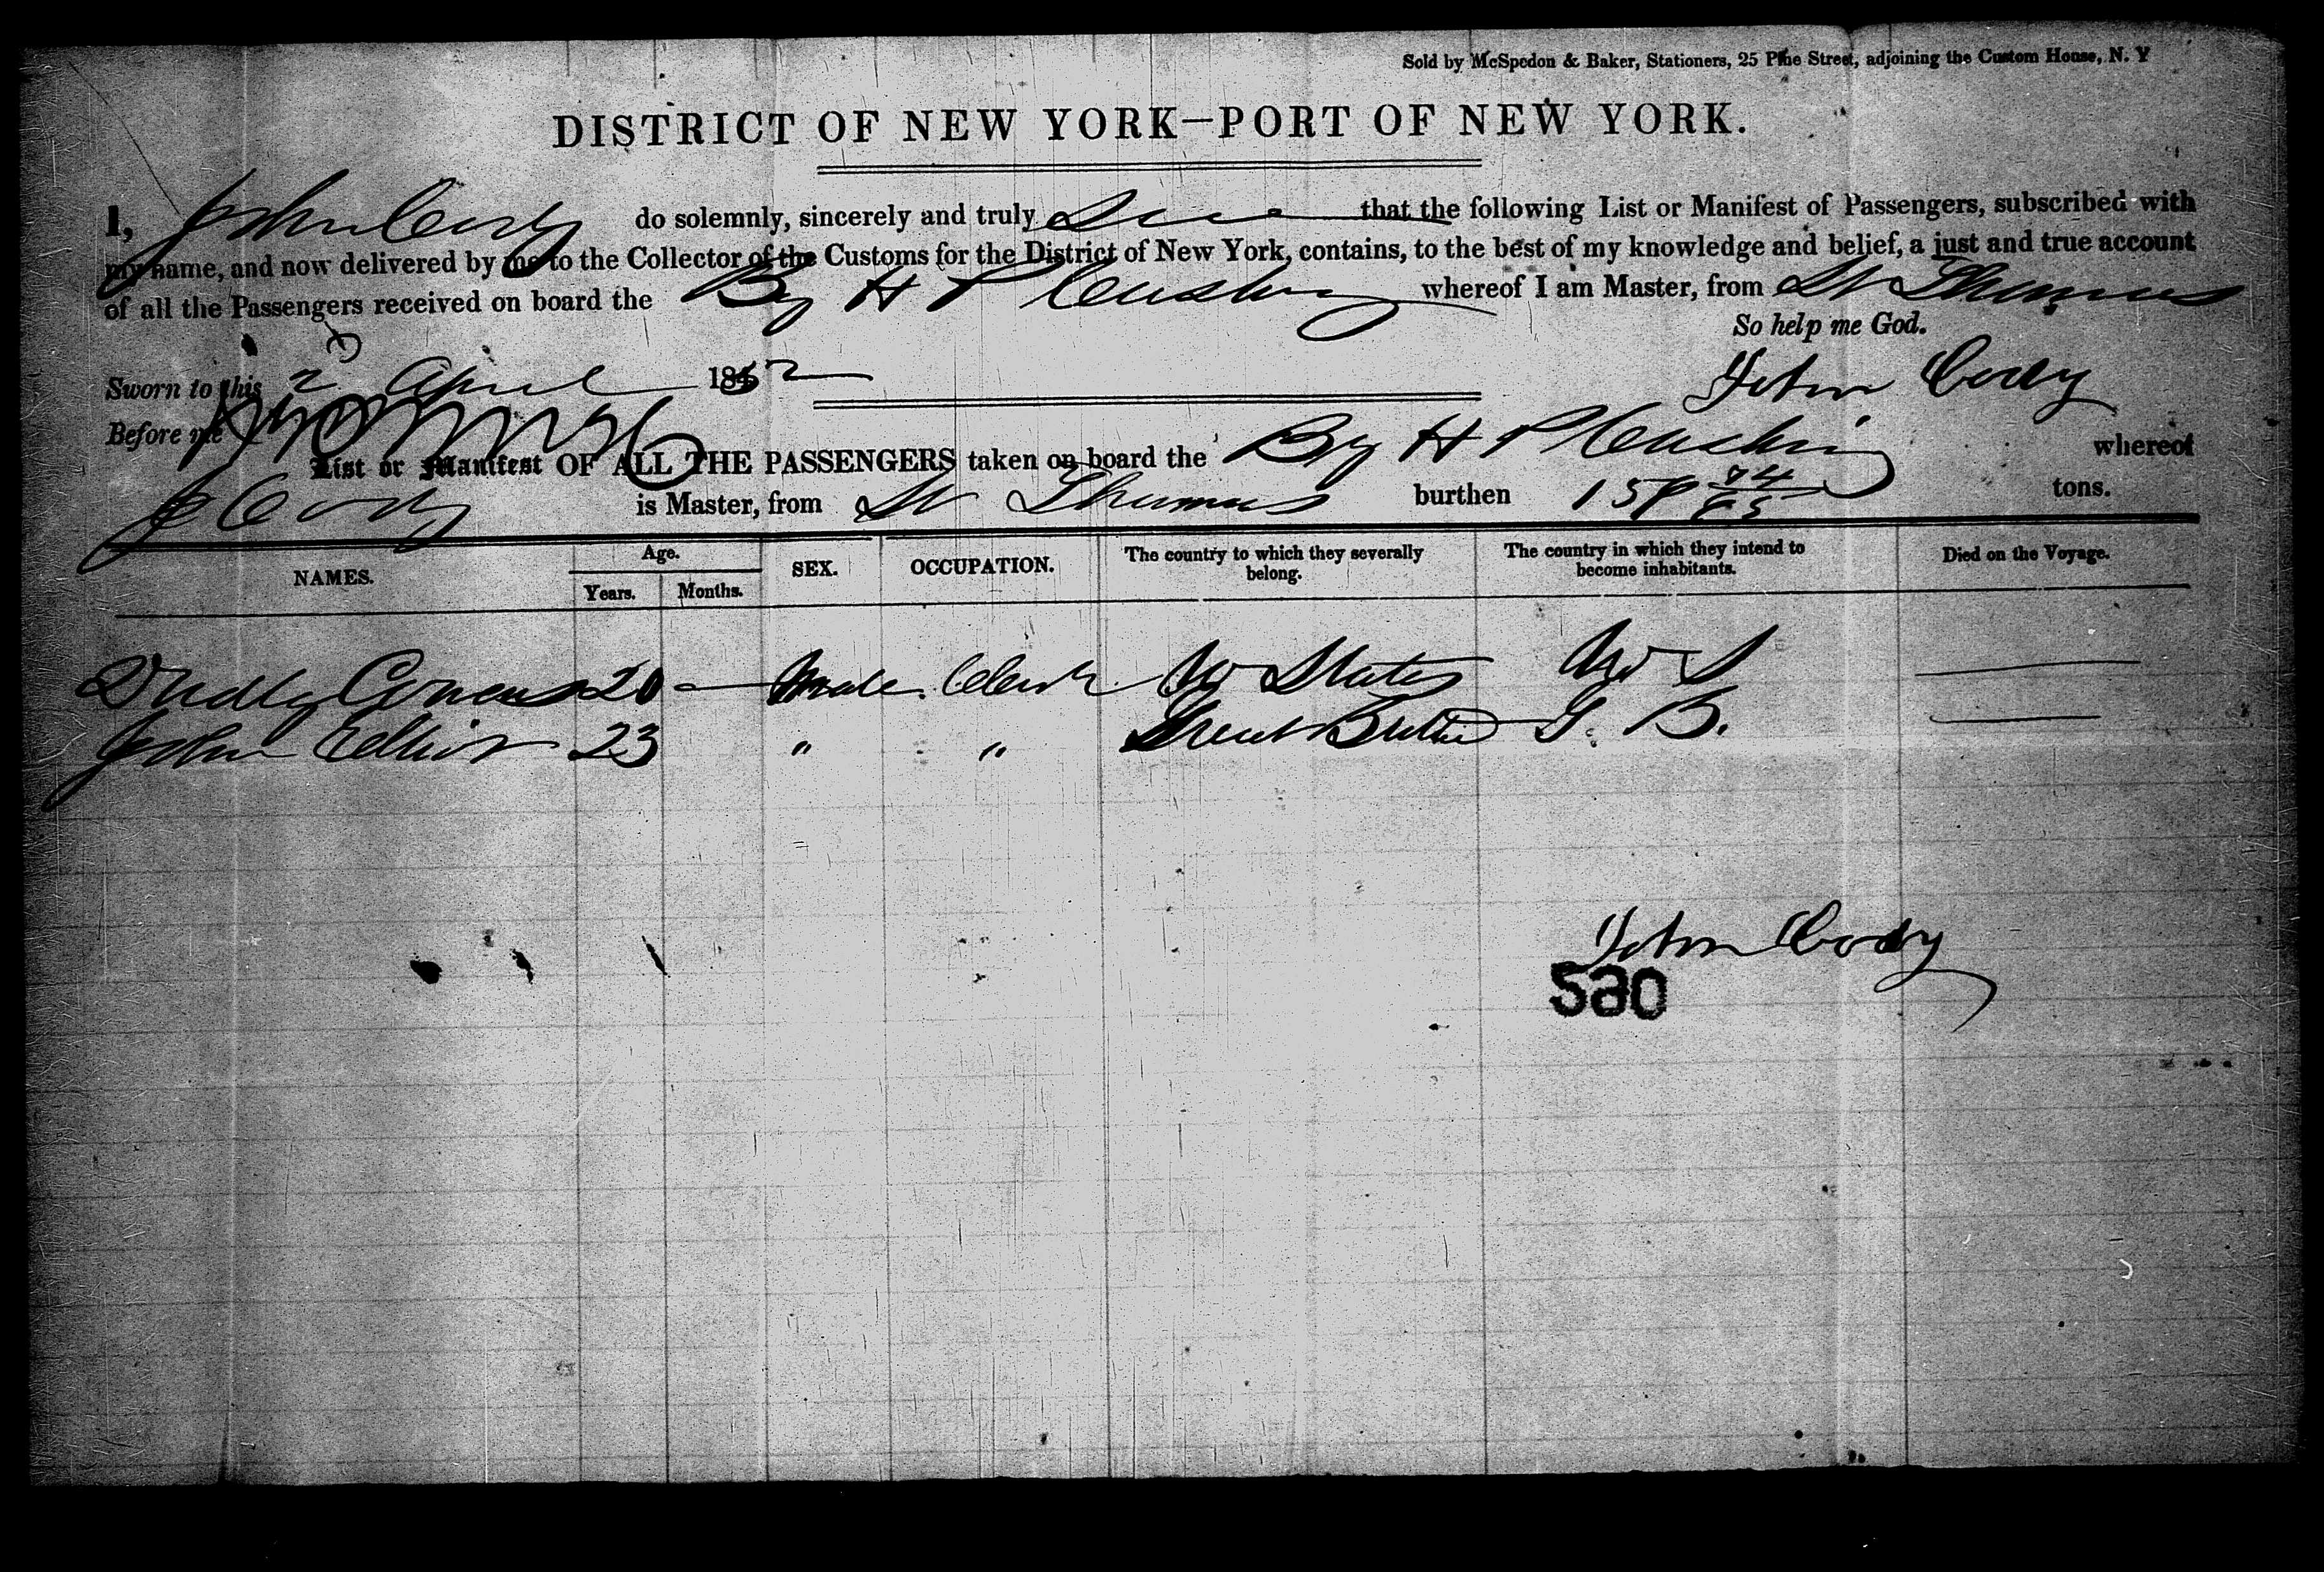 Sold by McSpedon & Baker, Stationers, 25 Pine Street, adjoining the Custom House, N. Y
DISTRICT OF NEW YORK—PORT OF NEW YORK.
I, John Cody do solemnly, sincerely and truly Swear that the following List or Manifest of Passengers, subscribed with
my name, and now delivered by me to the Collector of the Customs for the District of New York, contains, to the best of my knowledge and belief, a just and true account
of all the Passengers received on board the Bg H P Cushing whereof I am Master, from St Thomas
So help me God.
Sworn to this 2 April 1852
John Cody
Before me
List or Manifest OF ALL THE PASSENGERS taken on board the Bg H P Cushing whereof
J Cody is Master, from St Thomas burthen 159 tons.
NAMES. Age. Years. Months. SEX. OCCUPATION. The country to which they severally belong. The country in which they intend to become inhabitants. Died on the Voyage.
Dudly 20 — Male Clerk U States U S
John Elliot 23 " " Great Britain G. B.
John Cody
580